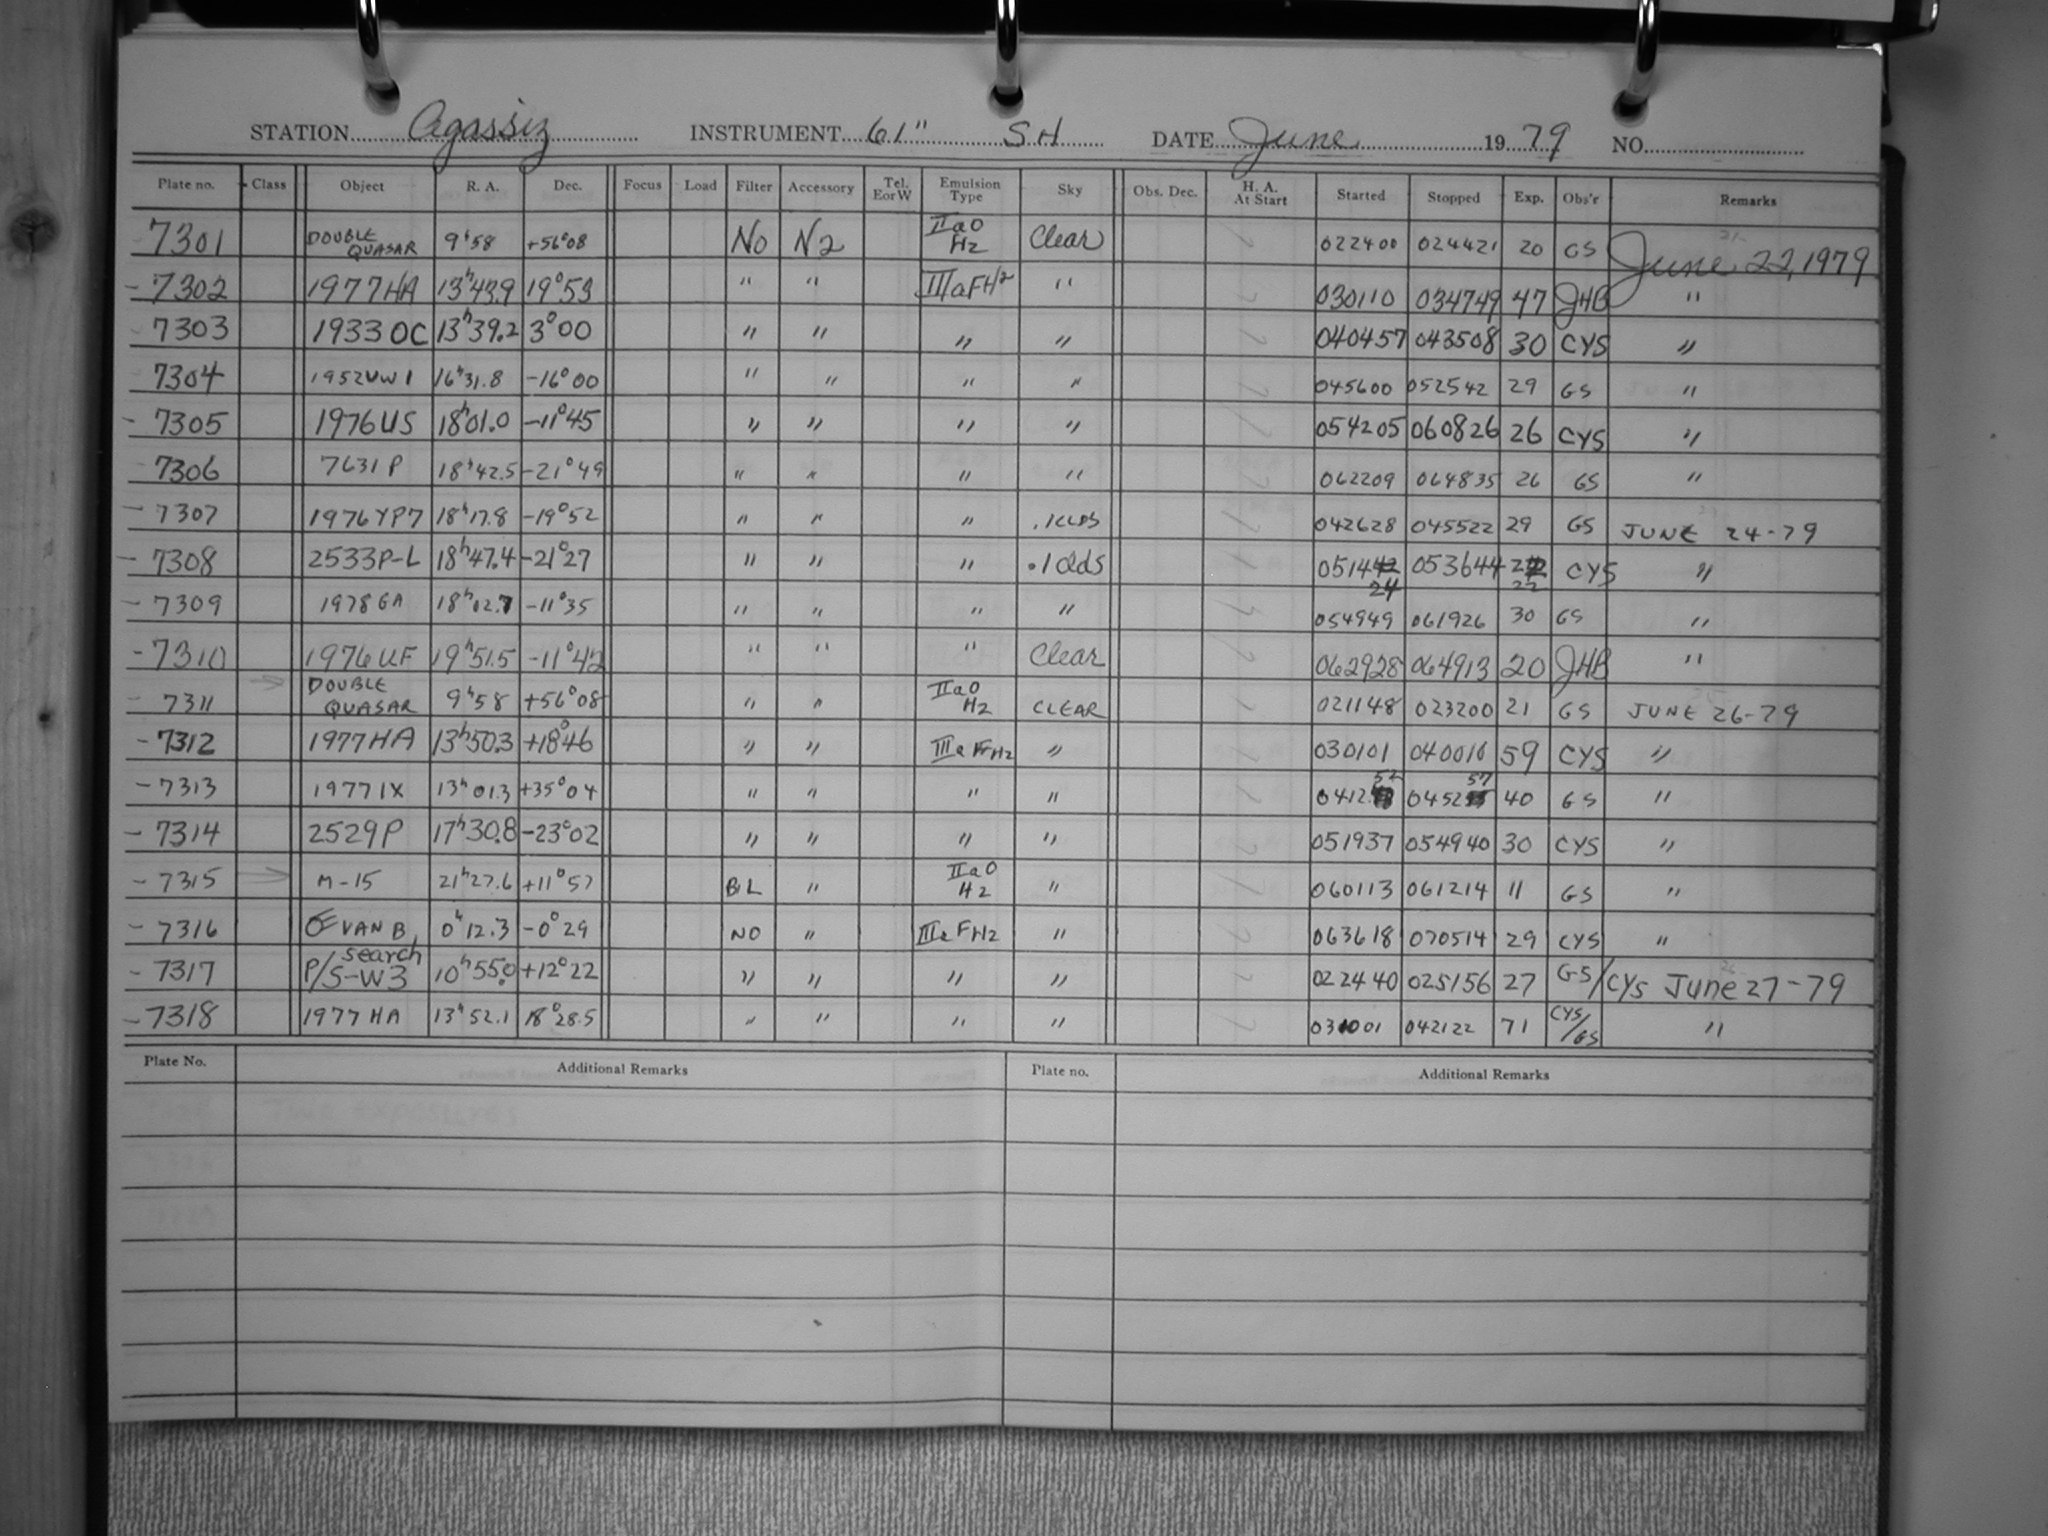 STATION Agassiz INSTRUMENT 61" SH DATE June 19 79 NO.
Plate no. Class Object R. A. Dec. Focus Load Filter Accessory Tel. E or W Emulsion Type Sky Obs. Dec. H. A. At Start Started Stopped Exp. Obs'r Remarks
7301 DOUBLE QUASAR 9h58 +56°08 No N2 IIaO H2 Clear 022400 024421 20 GS June 22, 1979
- 7302 1977HA 13h43.9 19°53 " " IIIaFH2 " 030110 034749 47 JHB "
- 7303 1933 OC 13h39.2 3°00 " " " " 040457 043508 30 CYS "
- 7304 1952UW1 16h31.8 -16°00 " " " " 045600 052542 29 GS "
- 7305 1976US 18h01.0 -11°45 " " " " 054205 060826 26 CYS "
- 7306 7631P 18h42.5 -21°49 " " " " 062209 064835 26 GS "
- 7307 1976YP7 18h17.8 -19°52 " " " .1CLDS 042628 045522 29 GS JUNE 24-79
- 7308 2533P-L 18h47.4 -21°27 " " " .1 clds 051424 053644 22 CYS "
- 7309 1978GA 18h02.7 -11°35 " " " " 054949 061926 30 GS "
- 7310 1976UF 19h51.5 -11°42 " " " Clear 062928 064913 20 JHB "
7311 DOUBLE QUASAR 9h58 +56°08 " " IIaO H2 CLEAR 021148 023200 21 GS JUNE 26-79
- 7312 1977HA 13h50.3 +18°46 " " IIIaFH2 " 030101 040016 59 CYS "
- 7313 1977IX 13h01.3 +35°04 " " " " 041252 045257 40 GS "
- 7314 2529P 17h30.8 -23°02 " " " " 051937 054940 30 CYS "
- 7315 M-15 21h27.6 +11°57 BL " IIaO H2 " 060113 061214 11 GS "
- 7316 VAN B. 0h12.3 -0°29 NO " IIIaFH2 " 063618 070514 29 CYS "
- 7317 search P/S-W3 10h55.0 +12°22 " " " " 022440 025156 27 GS/CYS June 27-79
- 7318 1977 HA 13h52.1 18°28.5 " " " " 031001 042122 71 CYS/GS "
Plate No. Additional Remarks Plate no. Additional Remarks